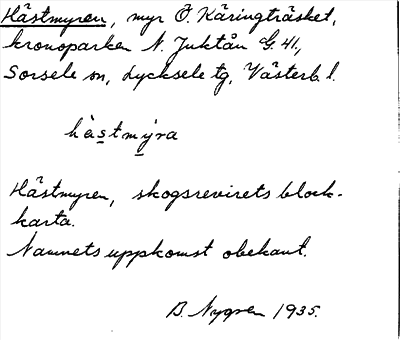 Hästmyren, myr Ö. Käringträsket,
kronoparken N. Juktån G. 41,
Sorsele sn, Lycksele tg, Västerb. l.
hàstmýra
Hästmyren, skogsrevirets block-
karta.
Namnets uppkomst obekant.
B. Nygren 1935.